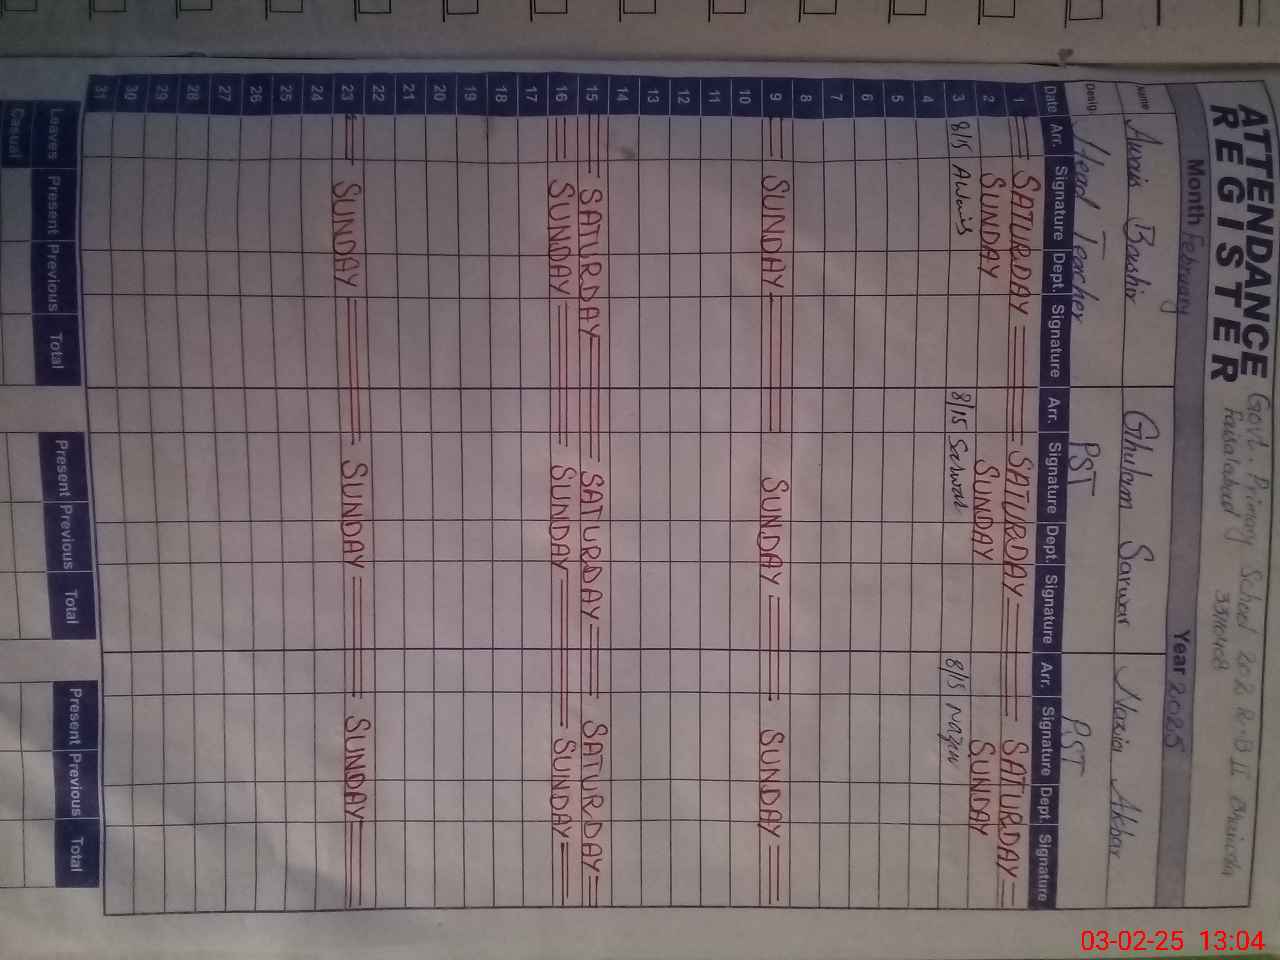 ATTENDANCE REGISTER
Govt. Primary School 202 R.B II
Faisalabad
Month February Year 2025
Name Awais Bashir Ghulam Sarwar Nazia Akbar
Desig Head Teacher PST PST
Date Arr. Signature Dept. Signature Arr. Signature Dept. Signature Arr. Signature Dept. Signature
1 SATURDAY SATURDAY SATURDAY
2 SUNDAY SUNDAY SUNDAY
3 8/15 Awais 8/15 Sarwar 8/15
4
5
6
7
8
9 SUNDAY SUNDAY SUNDAY
10
11
12
13
14
15 SATURDAY SATURDAY SATURDAY
16 SUNDAY SUNDAY SUNDAY
17
18
19
20
21
22
23 SUNDAY SUNDAY SUNDAY
24
25
26
27
28
29
30
31
Leaves Present Previous Total Present Previous Total Present Previous Total
Casual
03-02-25 13:04